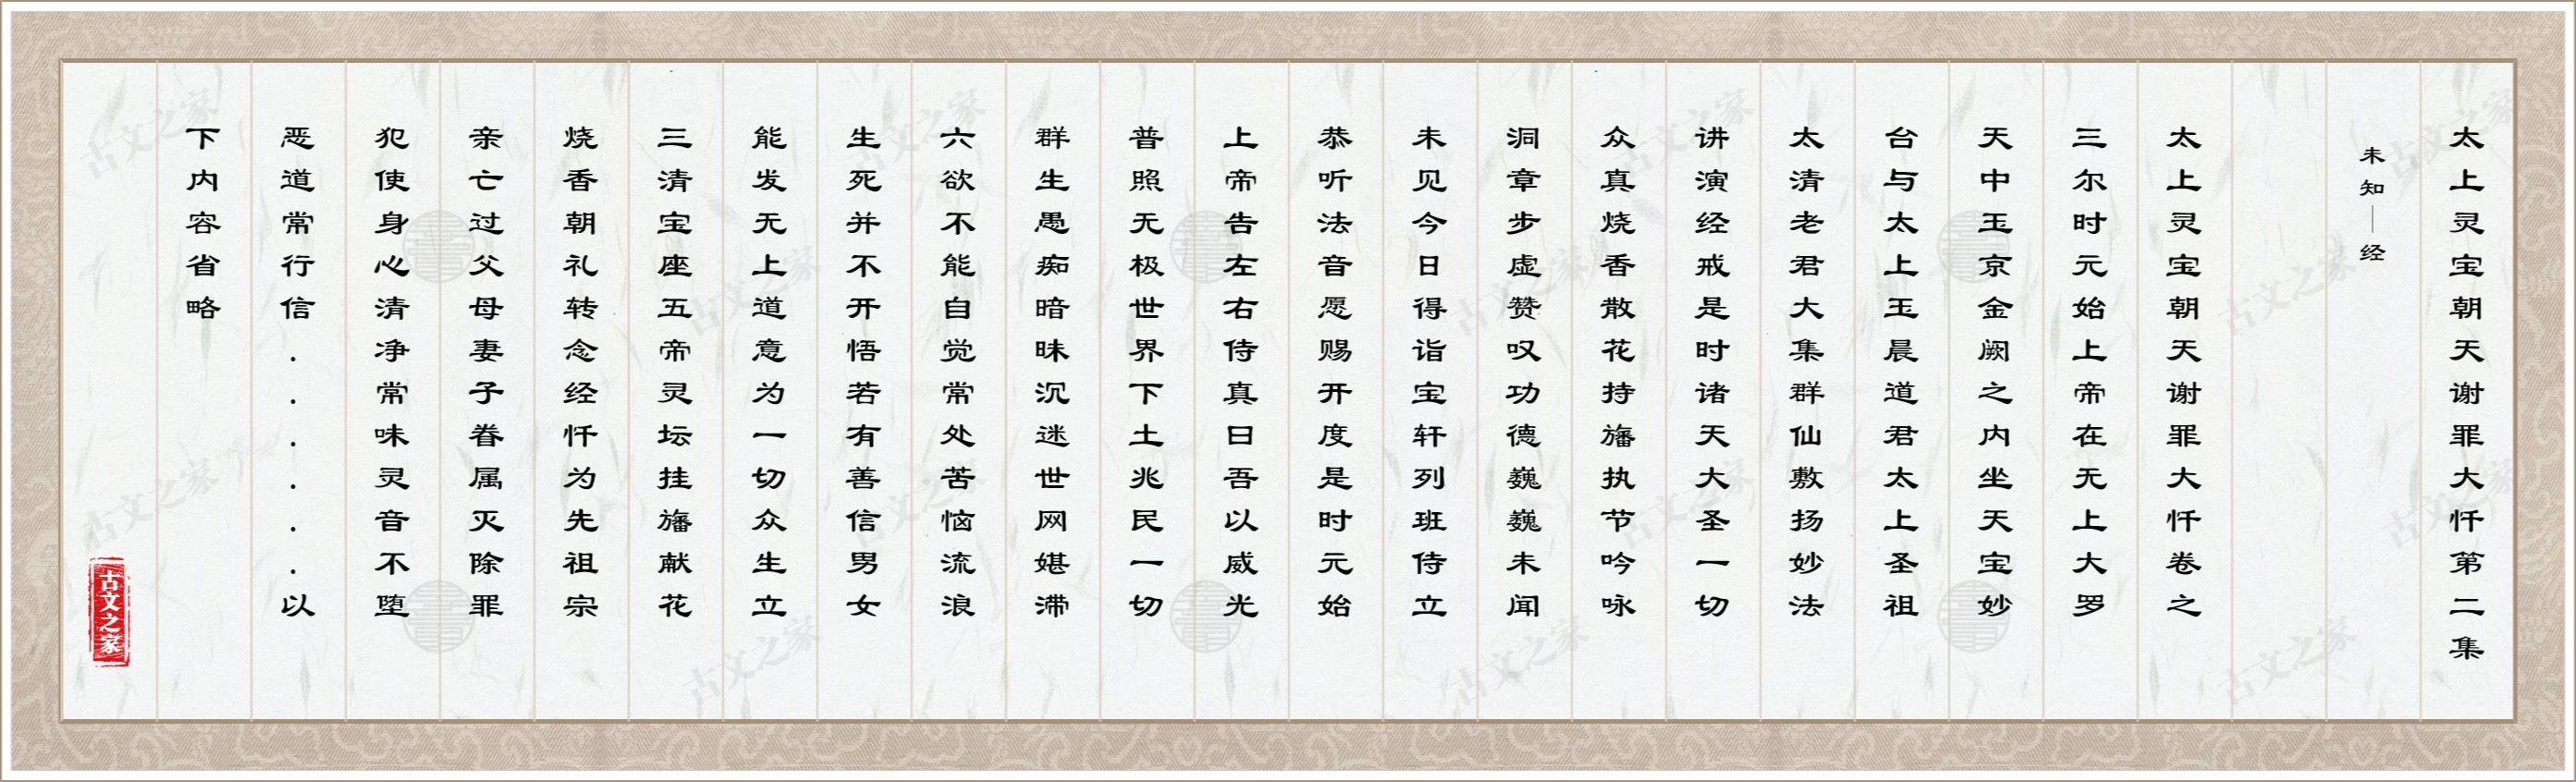 太上灵宝朝天谢罪大忏第二集
未知｜经
太上灵宝朝天谢罪大忏卷之
三尔时元始上帝在无上大罗
天中玉京金阙之内坐天宝妙
台与太上玉晨道君太上圣祖
太清老君大集群仙敷扬妙法
讲演经戒是时诸天大圣一切
众真烧香散花持旛执节吟咏
洞章步虚赞叹功德巍巍未闻
未见今日得诣宝轩列班侍立
恭听法音愿赐开度是时元始
上帝告左右侍真曰吾以威光
普照无极世界下土兆民一切
群生愚痴暗昧沉迷世网媅滞
六欲不能自觉常处苦恼流浪
生死并不开悟若有善信男女
能发无上道意为一切众生立
三清宝座五帝灵坛挂旛献花
烧香朝礼转念经忏为先祖宗
亲亡过父母妻子眷属灭除罪
犯使身心清净常味灵音不堕
恶道常行信......以
下内容省略
古文之家